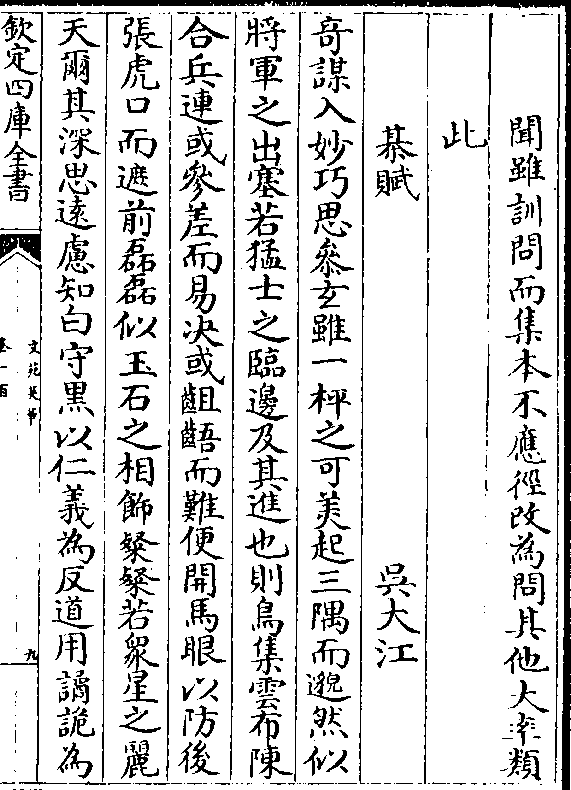 聞雖訓問而集本不應徑改為問其他大率類
此
棊賦　吳大江
奇謀入妙巧思參玄雖一枰之可美起三隅而邈然似
將軍之出塞若猛士之臨邊及其進也則鳥集雲布陳
合兵連或參差而易决或齟齬而難便開馬眼以防後
張虎口而遮前磊磊似玉石之相飾粲粲若衆星之麗
天爾其深思遠慮知白守黑以仁義為反道用譎詭為
欽定四庫全書
文苑英華
卷一百
九